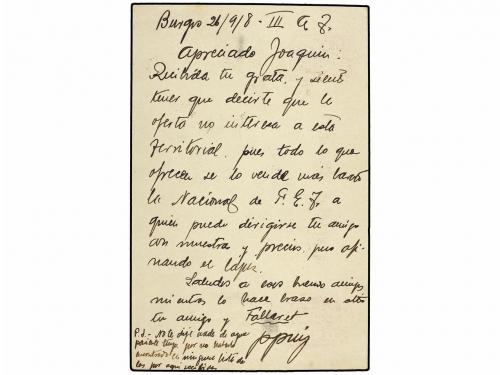 Burgos 26/9/8 - III A J.
Apreciado Joaquin:
Recibida tu grata, y siento
tener que decirte que la
oferta no interesa a esta
Territorial, pues todo lo que
ofrecen se lo vende más barato
la Nacional de F. E. J. a
quien puede dirigirse tu amigo
con muestras y precios, pero afi-
nando el lapiz.
Saludos a esos buenos amigos
mientras lo hace brazo en alto
tu amigo y Fallaret
P.D.- No te dije nada de aquel
pariente tuyo por no haberlo
encontrado en ninguna lista de
los por aqui recibidos